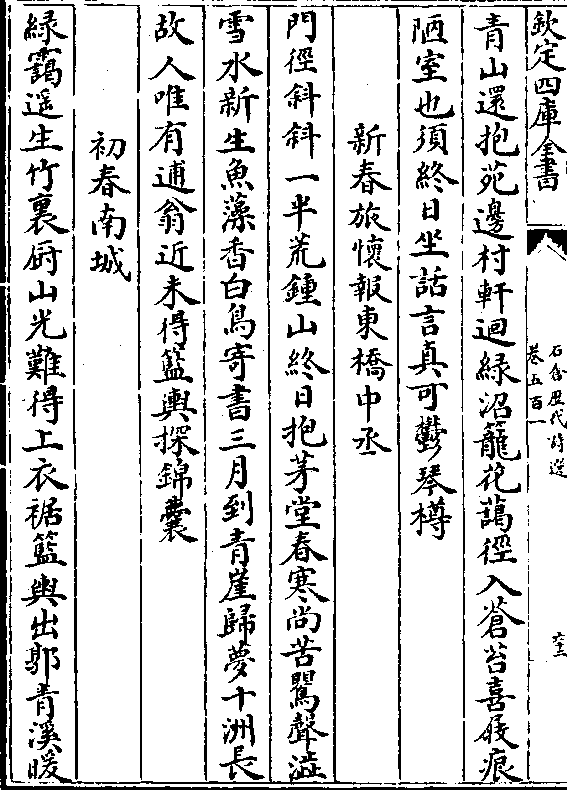 欽定四庫全書
石倉歷代詩選
卷五百一
六十三
青山還抱苑邊村軒迴綠沼籠花藹徑入蒼苔喜屐痕
陋室也須終日坐話言真可鬱琴樽
新春旅懷報東橋中丞
門徑斜斜一半荒鍾山終日抱茅堂春寒尚苦鶯聲澁
雪水新生魚藻香白鳥寄書三月到青崖歸夢十洲長
故人唯有逋翁近未得籃輿探錦囊
初春南城
綠靄遥生竹裏厨山光難得上衣裾籃輿出郭青溪暖